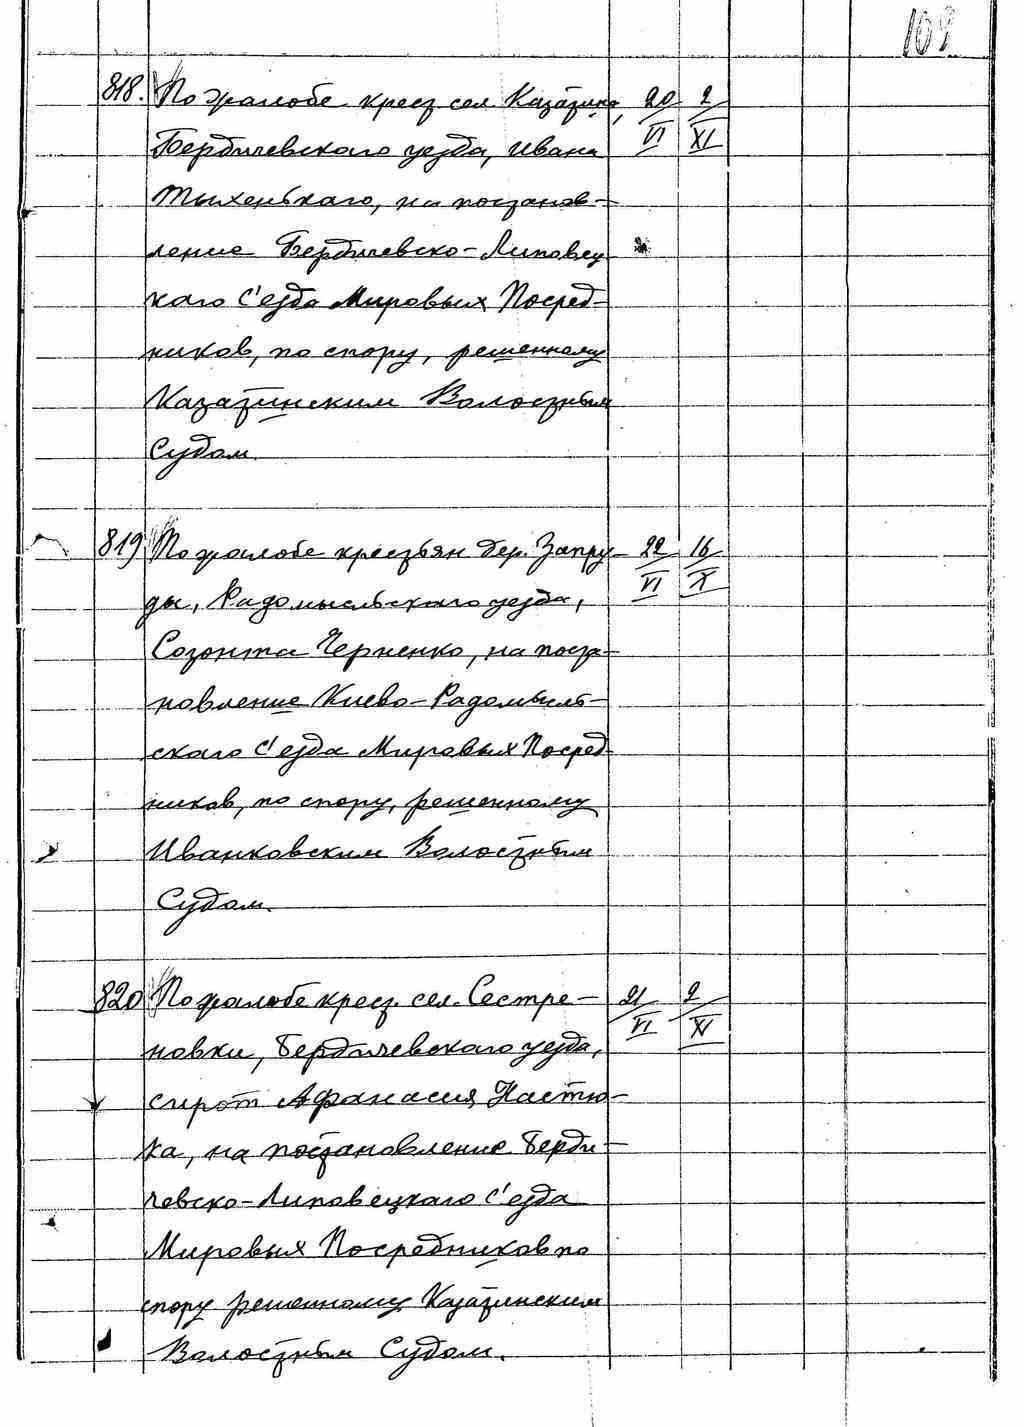 109
818. По жалобе крест. сел. Казатина, 20/VI 2/XI
Бердичевского уезда, Ивана
Тыхенького, на постанов-
ление Бердичевско-Липовец
кого с'езда Мировых Посред-
ников, по спору, решенному
Казатинским Волостным
Судом.
819 По жалобе крестьян дер. Запру- 22/VI 16/X
ды, Радомысльского уезда,
Созонта Черненко, на поста-
новление Киево-Радомысль-
ского с'езда Мировых Посред
ников, по спору, решенному
Иванковским Волостным
Судом.
820 По жалобе крест. сел. Сестре- 21/VI 2/XI
новки, Бердичевского уезда,
сирот Афанасия Настю-
ка, на постановление Берди-
чевско-Липовецкого с'езда
Мировых Посредников по
спору решенному Казатинским
Волостным Судом.